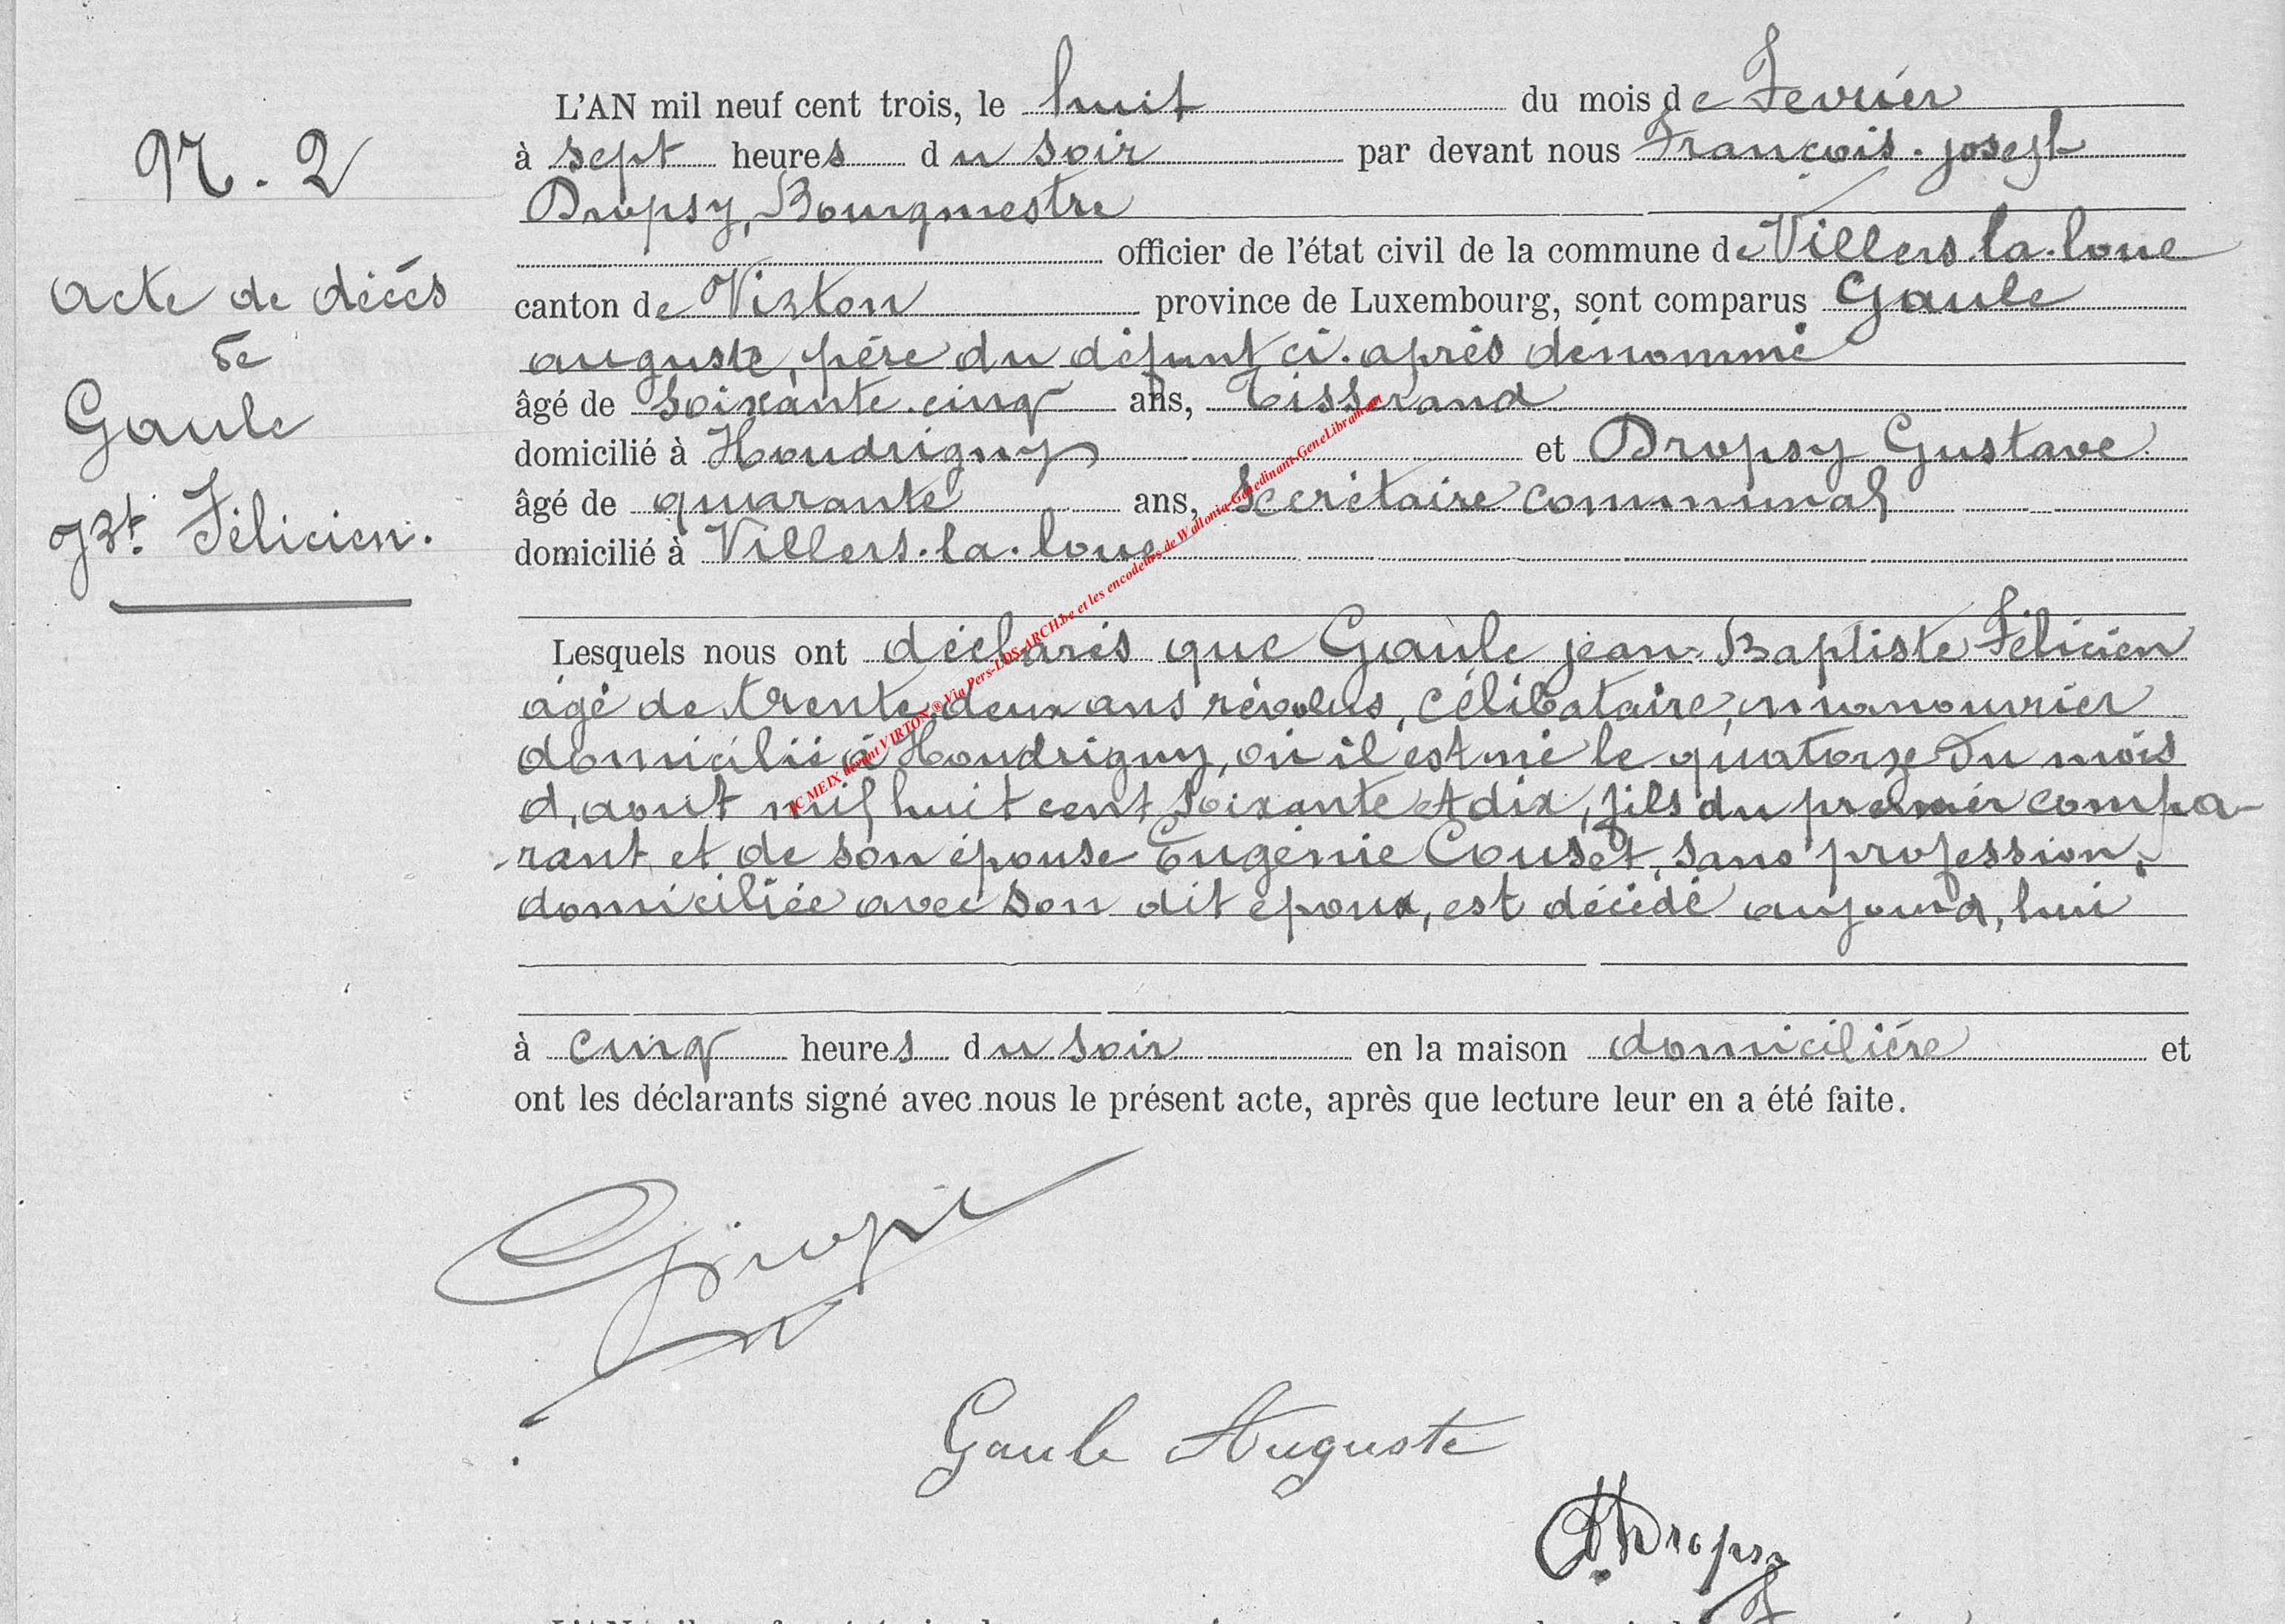 N. 2
Acte de décès
de
Gaule
Jbt. Félicien.
L'AN mil neuf cent trois, le huit du mois de Fevrier
à sept heures du soir par devant nous François-joseph
Dropsy, Bourgmestre
officier de l'état civil de la commune de Villers-la-loue
canton de Virton province de Luxembourg, sont comparus Gaule
auguste, père du défunt ci-après dénommé
âgé de soixante-cinq ans, Tisserand
domicilié à Houdrigny et Dropsy Gustave
âgé de quarante ans, Secrétaire communal
domicilié à Villers-la-loue
Lesquels nous ont déclarés que Gaule jean-Baptiste Félicien
âgé de trente-deux ans révolus, célibataire, manouvrier
domicilié à Houdrigny, où il est né le quatorze du mois
d'aout mil huit cent soixante et dix, fils du premier compa-
-rant et de son épouse Eugénie Couset, sans profession,
domiciliée avec son dit époux, est décédé aujourd'hui
à cinq heures du soir en la maison domicilière et
ont les déclarants signé avec nous le présent acte, après que lecture leur en a été faite.
Gaule Auguste
Dropsy
JC MEIX devant VIRTON ® Via Pers-LDS-ARCH.be et les encodeurs de Wallonia-Genedinant-GeneLibram.net